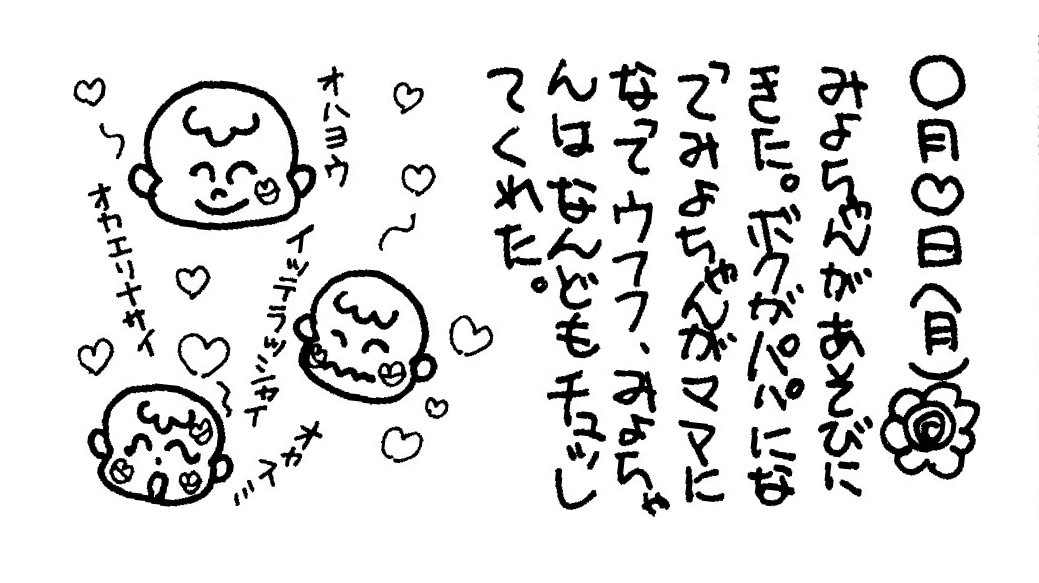 ○月♡日(月)
みよちゃんがあそびに
きた。ボクがパパにな
ってみよちゃんがママに
なってウフフ、みよちゃ
んはなんどもチュッし
てくれた。
オハヨウ
イッテラッシャイ
オカエリナサイ
オヤスミ